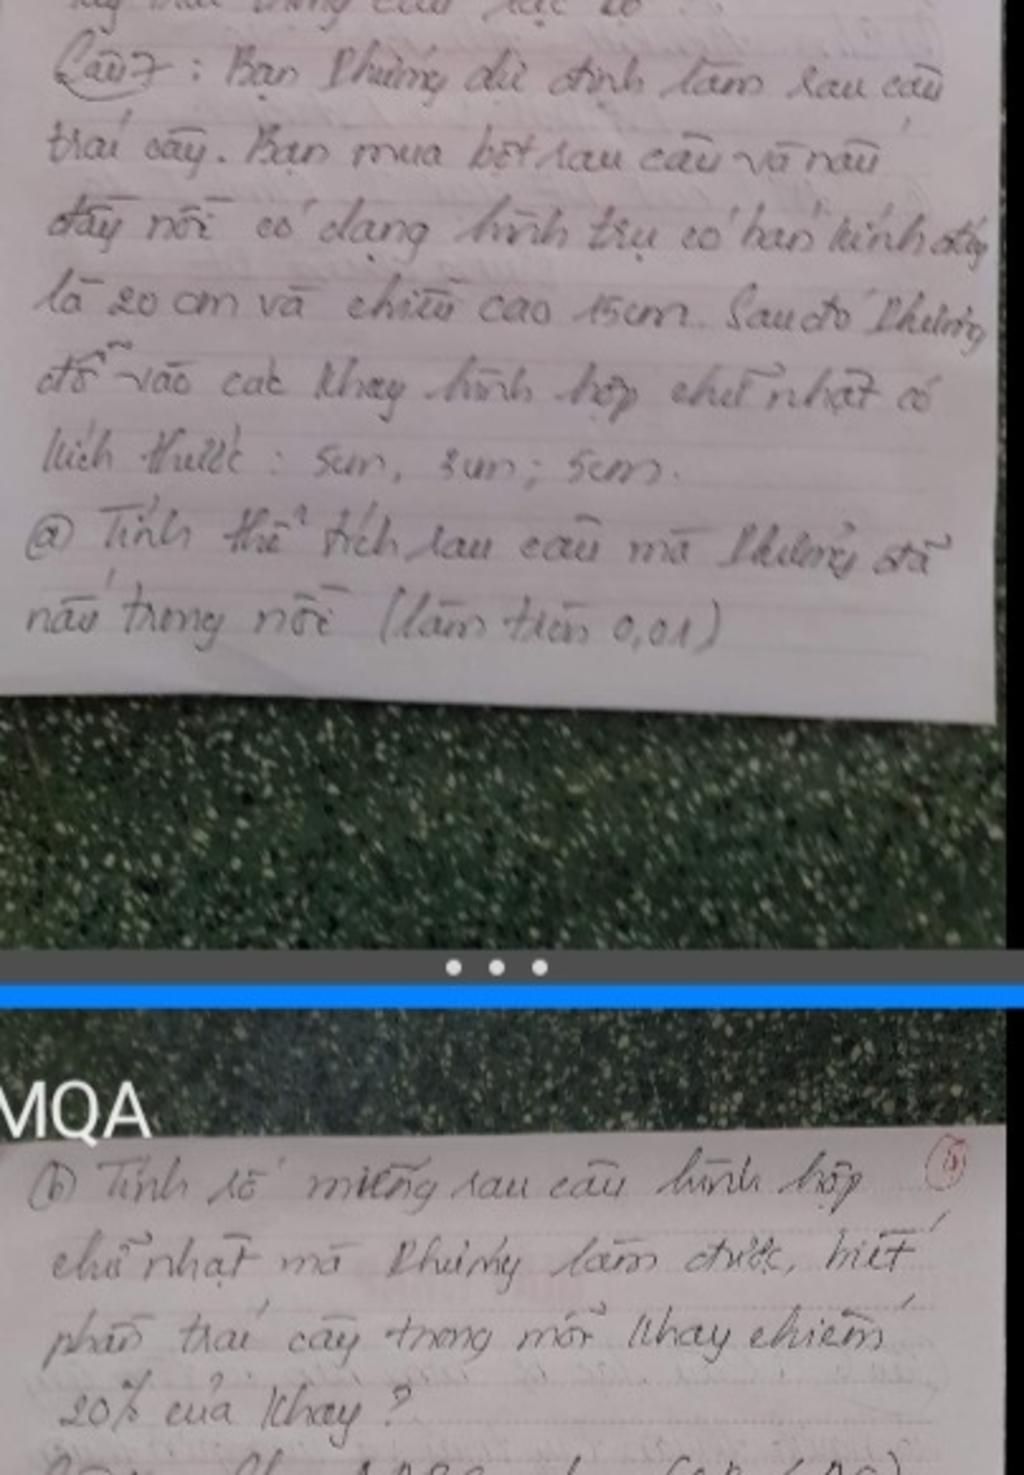 Câu 7 : Bạn Phương dự định làm rau câu
trái cây. Bạn mua bột rau câu và nấu
đầy nồi có dạng hình trụ có bán kính đáy
là 20 cm và chiều cao 15cm. Sau đó Phương
đổ vào các khay hình hộp chữ nhật có
kích thước : 5cm, 3cm; 5cm.
a) Tính thể tích rau câu mà Phương đã
nấu trong nồi (làm tròn 0,01)
MQA
b) Tính số miếng rau câu hình hộp
chữ nhật mà Phương làm được, biết
phần trái cây trong mỗi khay chiếm
20% của khay ?